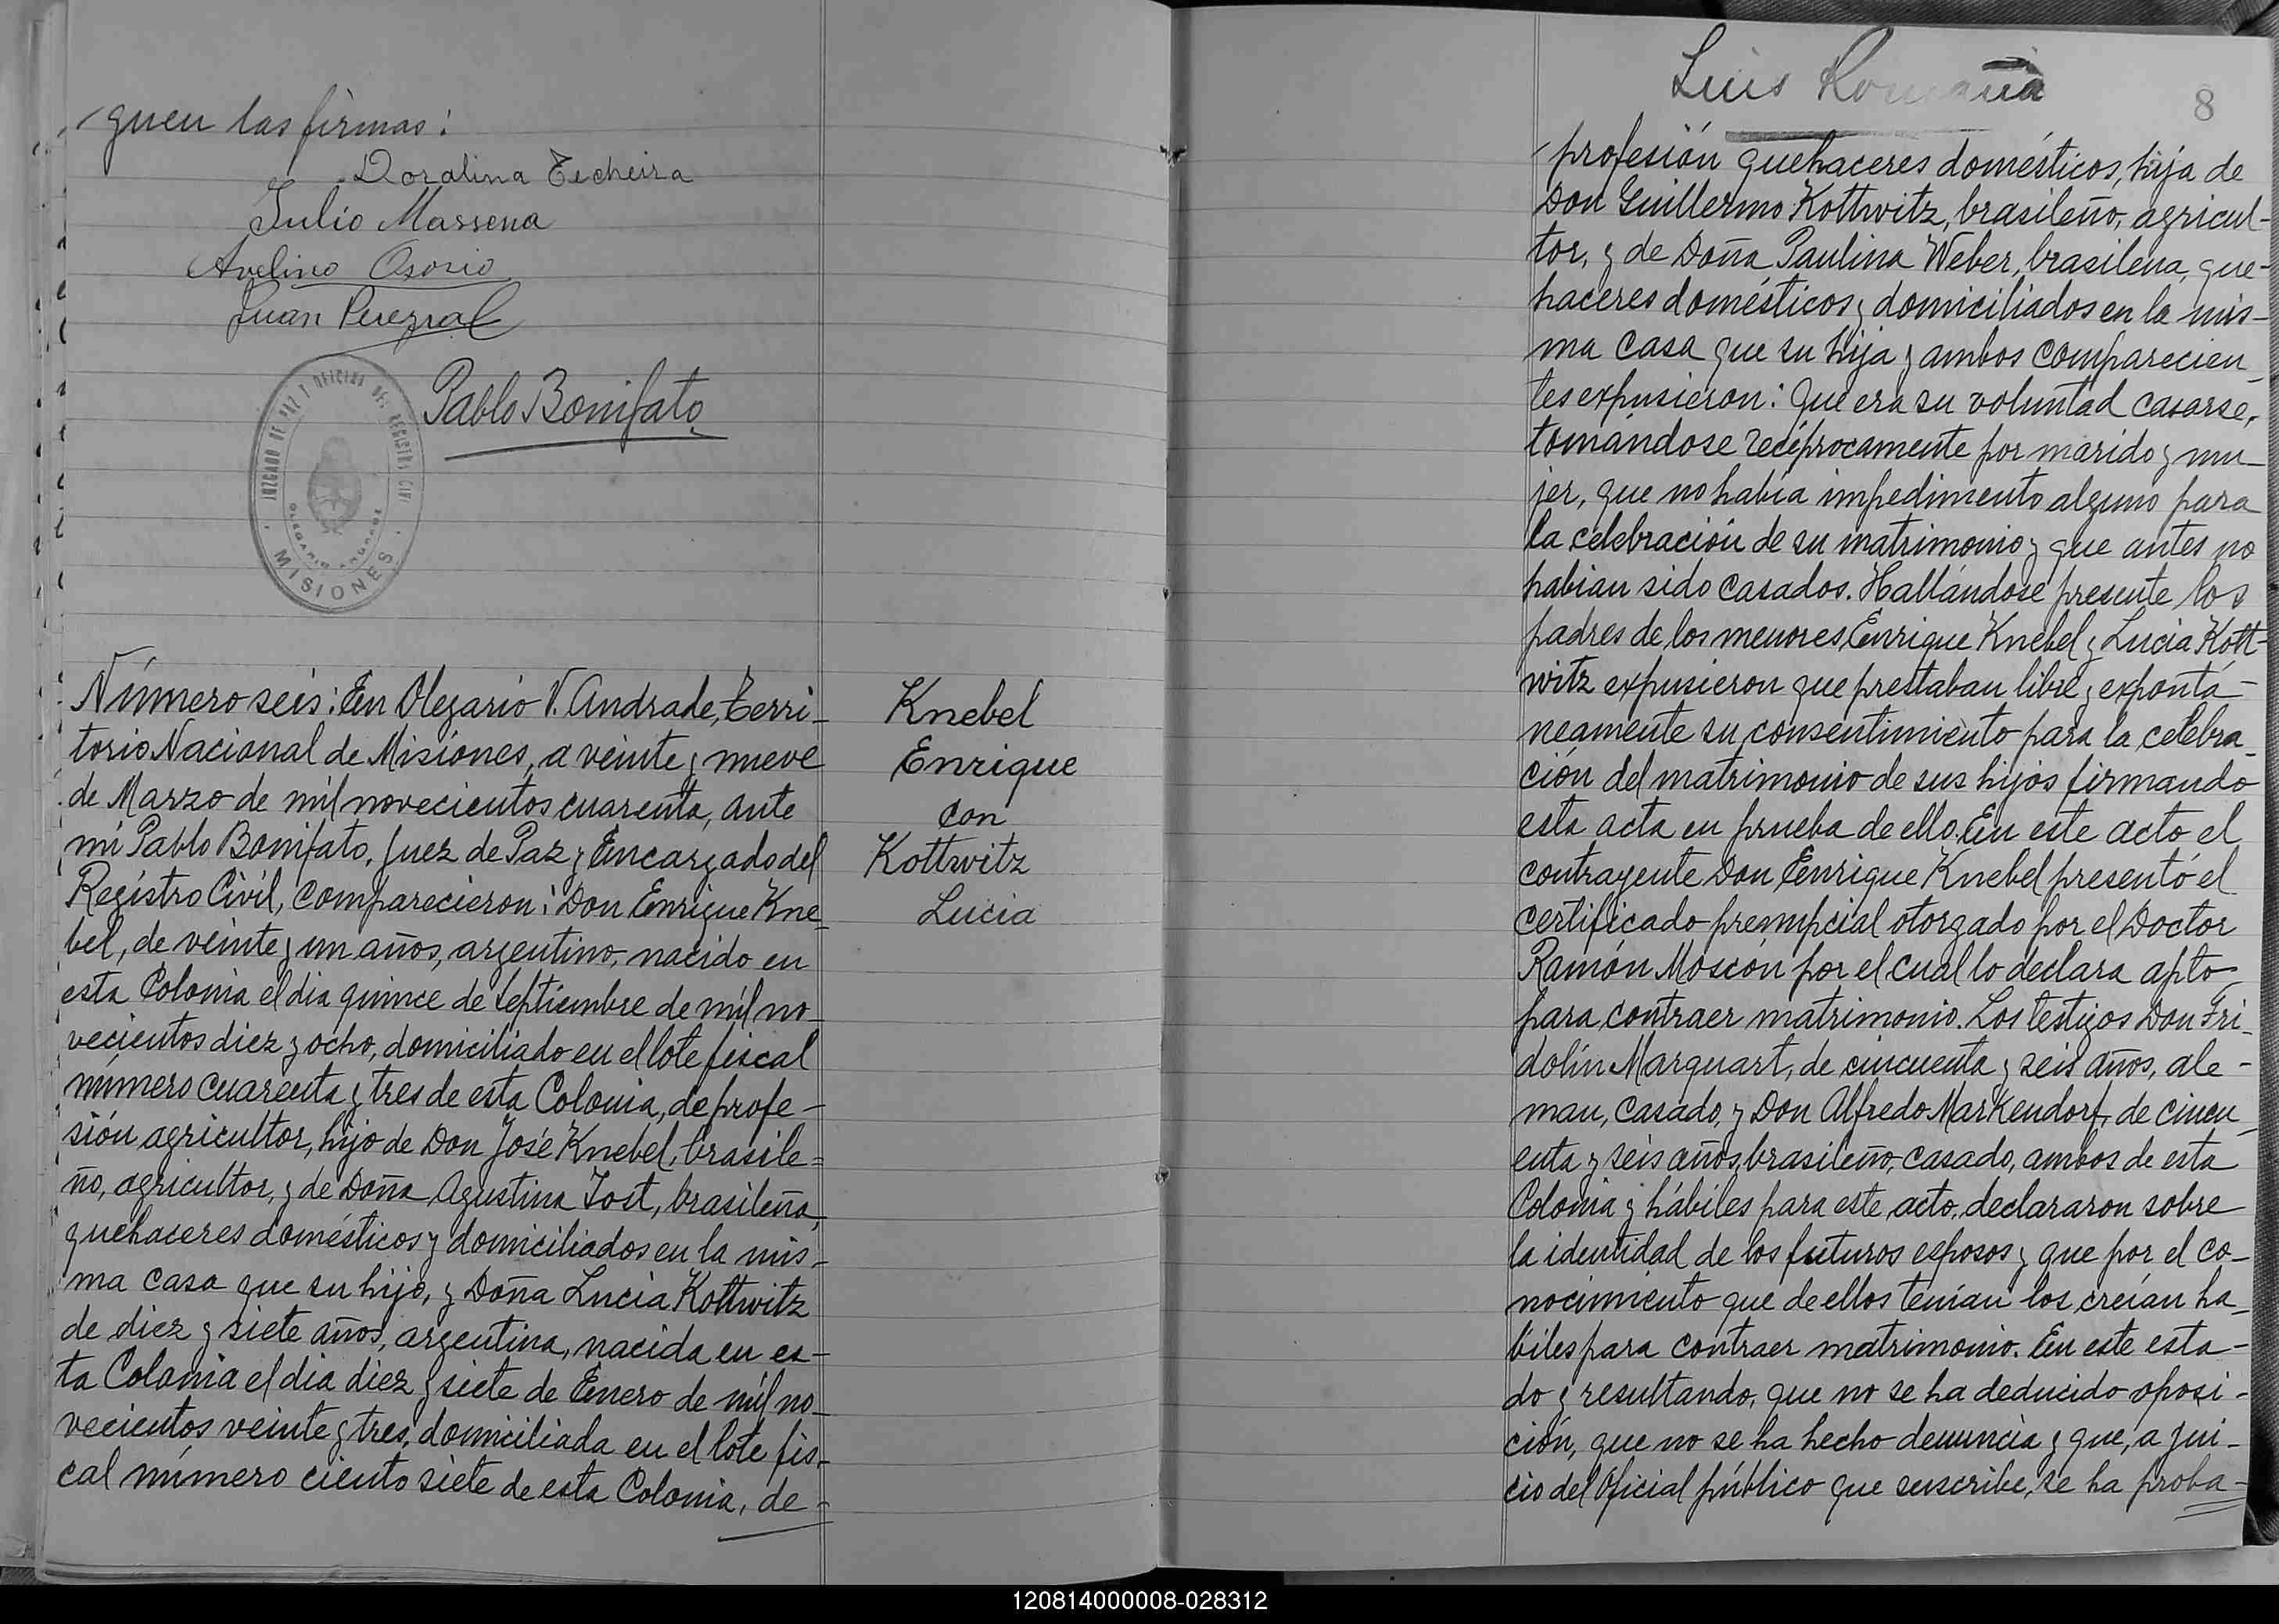 guen las firmas:
Doralina Techeira
Julio Massena
Avelino Osorio
Juan
Pablo Bonifato
JUZGADO DE PAZ Y OFICINA DEL REGISTRO CIVIL
OLEGARIO ANDRADE
MISIONES
Número seis: En Olegario V. Andrade, Terri-
torio Nacional de Misiones, a veinte y nueve
de Marzo de mil novecientos cuarenta, ante
mí Pablo Bonifato, Juez de Paz y Encargado del
Registro Civil, comparecieron: Don Enrique Kne-
bel, de veinte y un años, argentino, nacido en
esta Colonia el dia quince de Septiembre de mil no-
vecientos diez y ocho, domiciliado en el lote fiscal
número cuarenta y tres de esta Colonia, de profe-
sión agricultor, hijo de Don José Knebel, brasile=
ño, agricultor, y de Doña Agustina Jost, brasileña,
quehaceres domésticos y domiciliados en la mis-
ma casa que su hijo, y Doña Lucia Kottwitz
de diez y siete años, argentina, nacida en es-
ta Colonia el dia diez y siete de Enero de mil no-
vecientos veinte y tres, domiciliada en el lote fis-
cal número ciento siete de esta Colonia, de=
Knebel
Enrique
con
Kottwitz
Lucia
Luis Romaña
8
profesión quehaceres domésticos, hija de
Don Guillermo Kottwitz, brasileño, agricul-
tor, y de Doña Paulina Weber, brasilena, que-
haceres domésticos y domiciliados en la mis-
ma casa que su hija y ambos comparecien-
tes expusieron: Que era su voluntad casarse,
tomándose recíprocamente por marido y mu-
jer, que no había impedimento alguno para
la celebración de su matrimonio y que antes no
habian sido casados. Hallándose presente los
padres de los menores Enrique Knebel y Lucia Kott-
witz expusieron que prestaban libre y expontá-
neamente su consentimiento para la celebra-
ción del matrimonio de sus hijos firmando
esta acta en prueba de ello. En este acto el
contrayente Don Enrique Knebel presentó el
certificado prenupcial otorgado por el Doctor
Ramón Moscon por el cual lo declara apto
para contraer matrimonio. Los testigos Don Fri-
dolín Marquart, de cincuenta y seis años, ale-
man, casado, y Don Alfredo Markendorf, de cincu-
enta y seis años, brasileño, casado, ambos de esta
Colonia y hábiles para este acto, declararon sobre
la identidad de los futuros esposos y que por el co-
nocimiento que de ellos tenían los creían ha-
biles para contraer matrimonio. En este esta-
do y resultando, que no se ha deducido oposi-
ción, que no se ha hecho denuncia y que, a jui-
cio del Oficial público que suscribe, se ha proba=
120814000008-028312